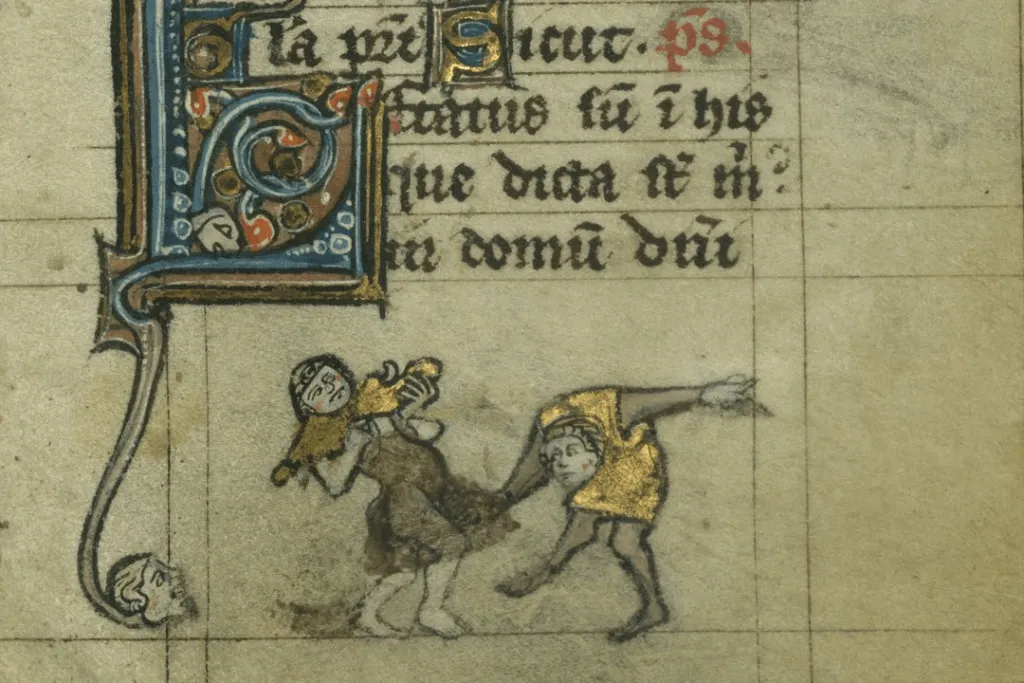 Gl̄a pr̄i Sicut. ps̄.
Letatus sū ī his
que dicta st̄ m̄:
in domū dn̄i